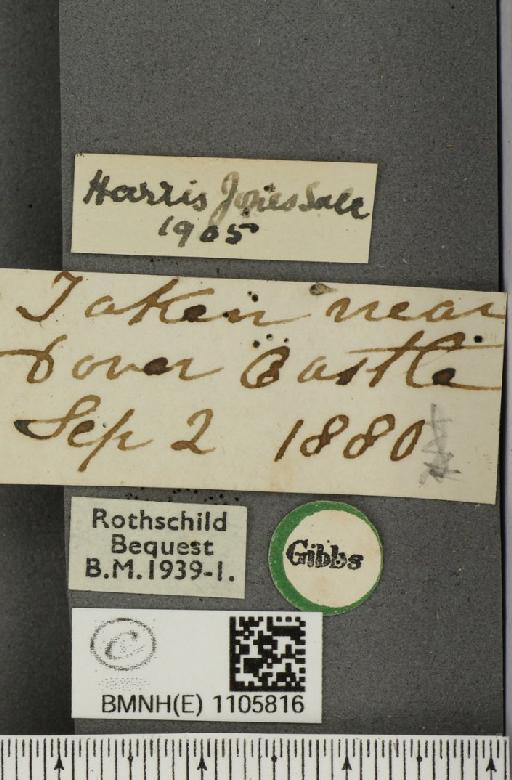 Harris Jones Sale
1905
Taken near
Dover Castle
Sep 2 1880
Rothschild
Bequest
B.M.1939-1.
Gibbs
C
BMNH(E) 1105816